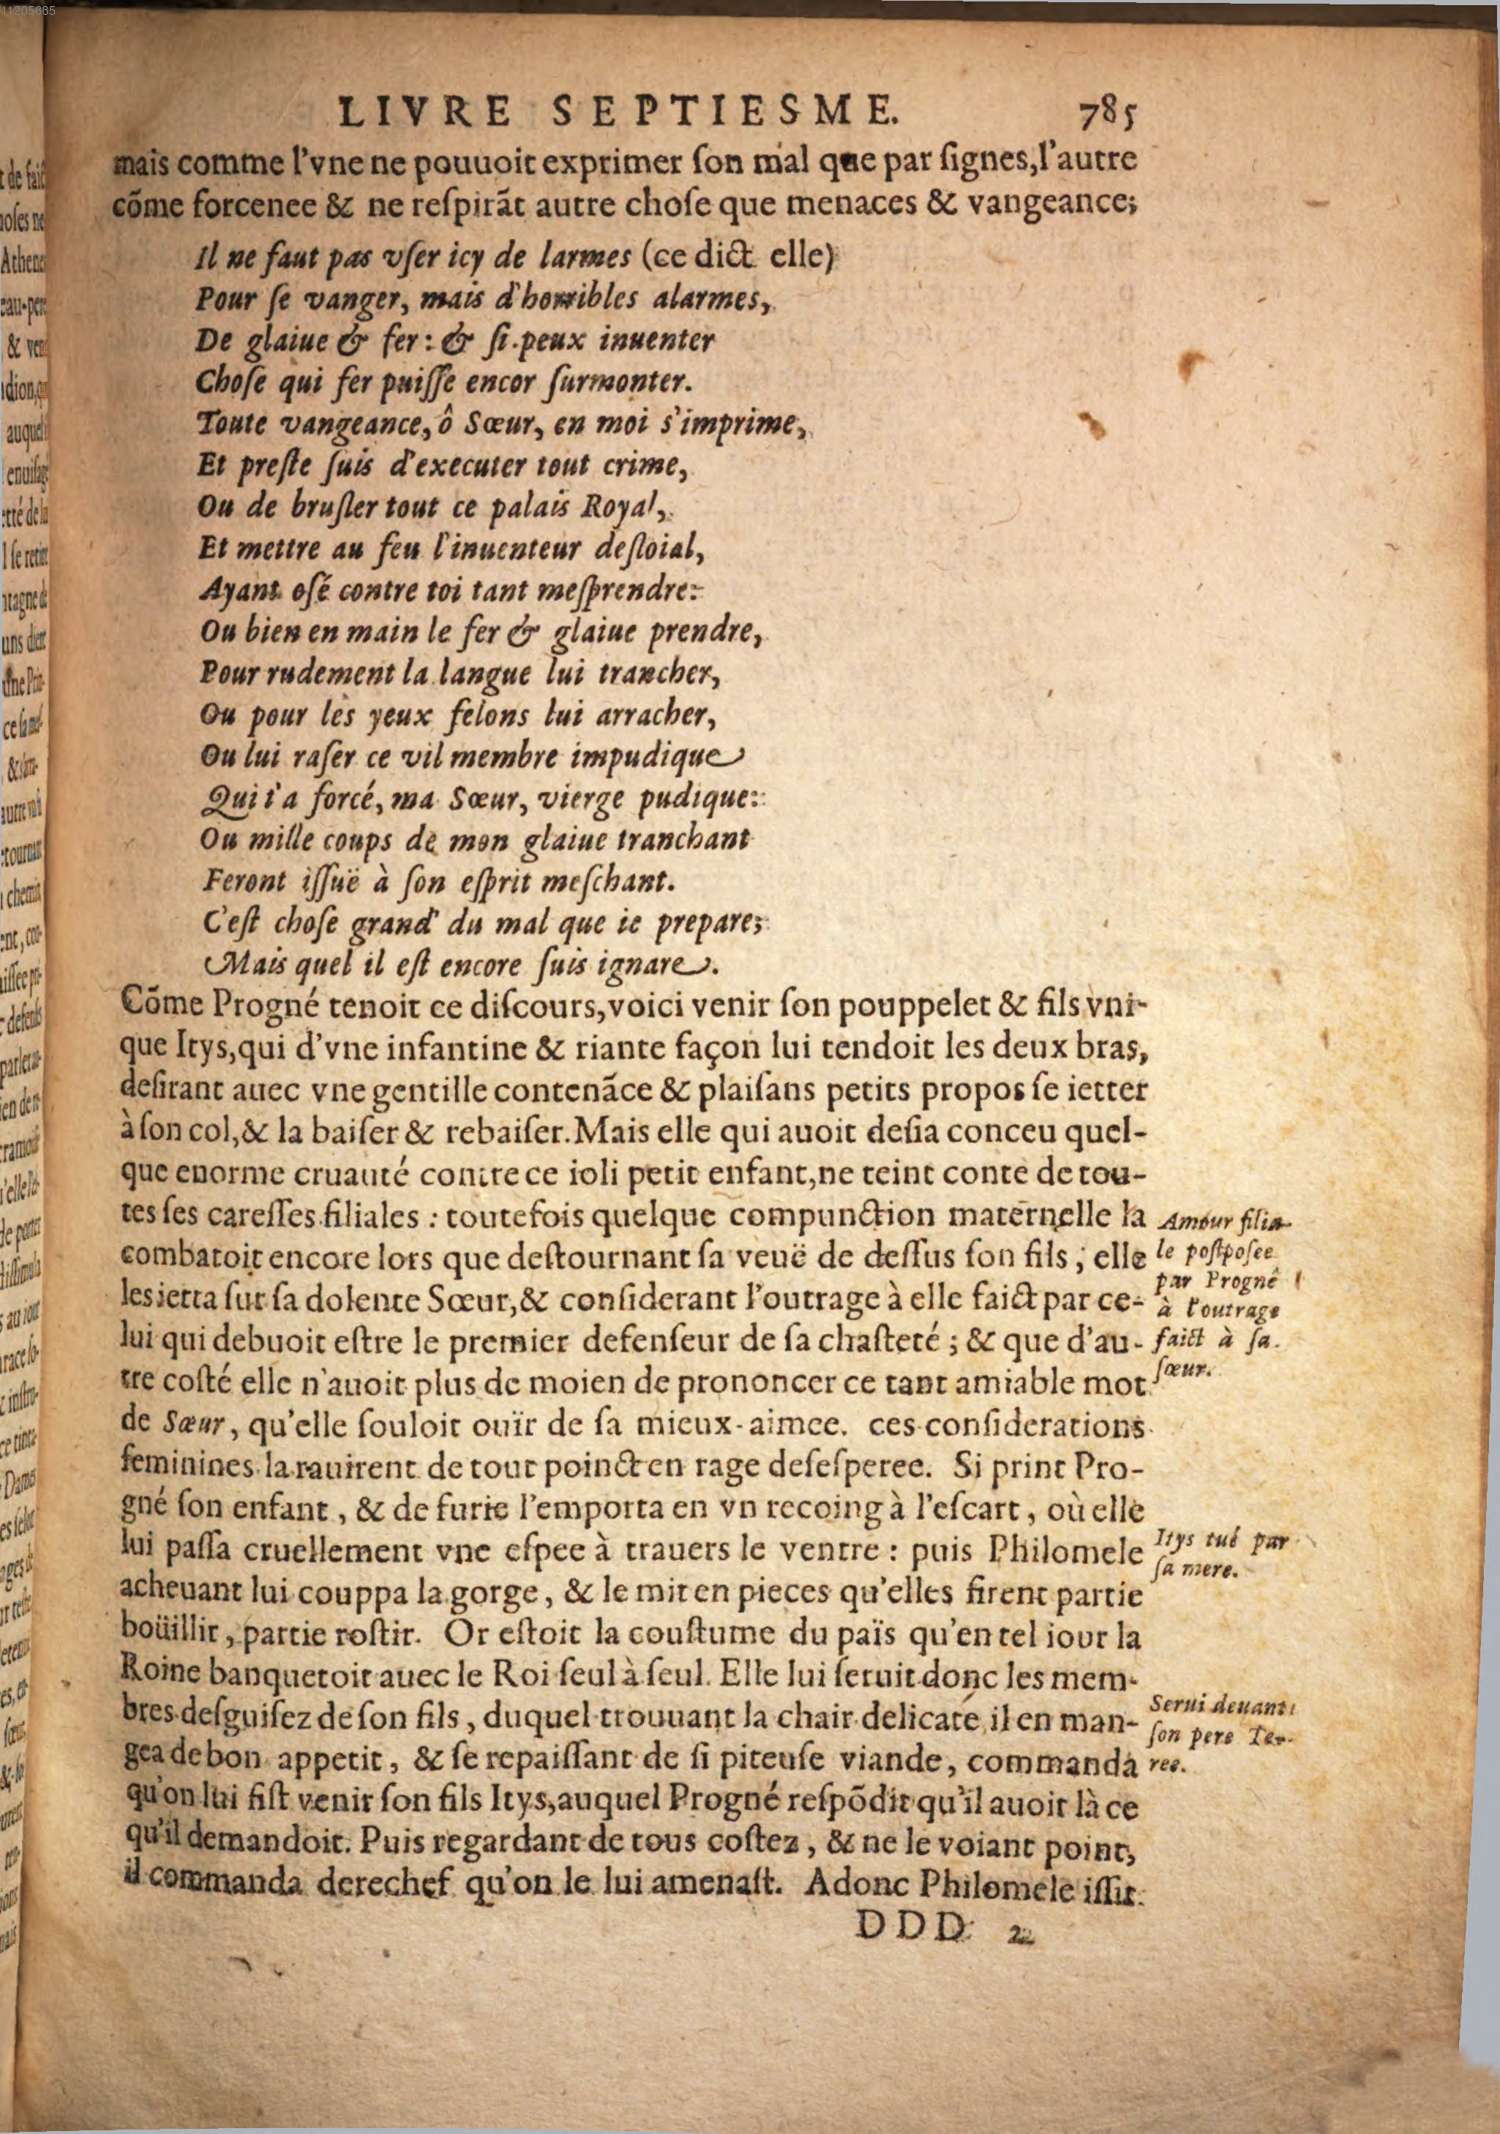 LIVRE SEPTIESME. 785
mais comme l'vne ne pouuoit exprimer ſon mal que par ſignes, l'autre
cõme forcenee & ne reſpirãt autre choſe que menaces & vangeance;
Il ne faut pas vſer icy de larmes (ce dict elle)
Pour ſe vanger, mais d'horribles alarmes,
De glaiue & fer: & ſi peux inuenter
Choſe qui fer puiſſe encor ſurmonter.
Toute vangeance, ô Sœur, en moi s'imprime,
Et preſte ſuis d'executer tout crime,
Ou de bruſler tout ce palais Royal,
Et mettre au feu l'inuenteur deſloial,
Ayant oſé contre toi tant meſprendre:
Ou bien en main le fer & glaiue prendre,
Pour rudement la langue lui trancher,
Ou pour les yeux felons lui arracher,
Ou lui raſer ce vil membre impudique
Qui t'a forcé, ma Sœur, vierge pudique:
Ou mille coups de mon glaiue tranchant
Feront iſſuë à ſon eſprit meſchant.
C'eſt choſe grand' du mal que ie prepare;
Mais quel il eſt encore ſuis ignare.
Cõme Progné tenoit ce diſcours, voici venir ſon pouppelet & fils vni-
que Itys, qui d'vne infantine & riante façon lui tendoit les deux bras,
deſirant auec vne gentille contenãce & plaiſans petits propos ſe ietter
à ſon col, & la baiſer & rebaiſer. Mais elle qui auoit deſia conceu quel-
que enorme cruauté contre ce ioli petit enfant, ne teint conte de tou-
tes ſes careſſes filiales : toutefois quelque compunction maternelle la
combatoit encore lors que deſtournant ſa veuë de deſſus ſon fils ; elle
les ietta ſur ſa dolente Sœur, & conſiderant l'outrage à elle faict par ce-
lui qui debuoit eſtre le premier defenſeur de ſa chaſteté ; & que d'au-
tre coſté elle n'auoit plus de moien de prononcer ce tant amiable mot
de Sœur, qu'elle ſouloit ouïr de ſa mieux-aimee. ces conſiderations
feminines la rauirent de tout poinct en rage deſeſperee. Si print Pro-
gné ſon enfant, & de furie l'emporta en vn recoing à l'eſcart, où elle
lui paſſa cruellement vne eſpee à trauers le ventre : puis Philomele
acheuant lui couppa la gorge, & le mit en pieces qu'elles firent partie
boüillir, partie roſtir. Or eſtoit la couſtume du païs qu'en tel iour la
Roine banquetoit auec le Roi ſeul à ſeul. Elle lui ſeruit donc les mem-
bres deſguiſez de ſon fils, duquel trouuant la chair delicate, il en man-
gea de bon appetit, & ſe repaiſſant de ſi piteuſe viande, commanda
qu'on lui fiſt venir ſon fils Itys, auquel Progné reſpõdit qu'il auoit là ce
qu'il demandoit. Puis regardant de tous coſtez, & ne le voiant point,
il commanda derechef qu'on le lui amenaſt. Adonc Philomele iſſit
DDD 2
Amour filia-
le poſtpoſee
par Progné
à l'outrage
faict à ſa
ſœur.
Itys tué par
ſa mere.
Serui deuant
ſon pere Te-
ree.